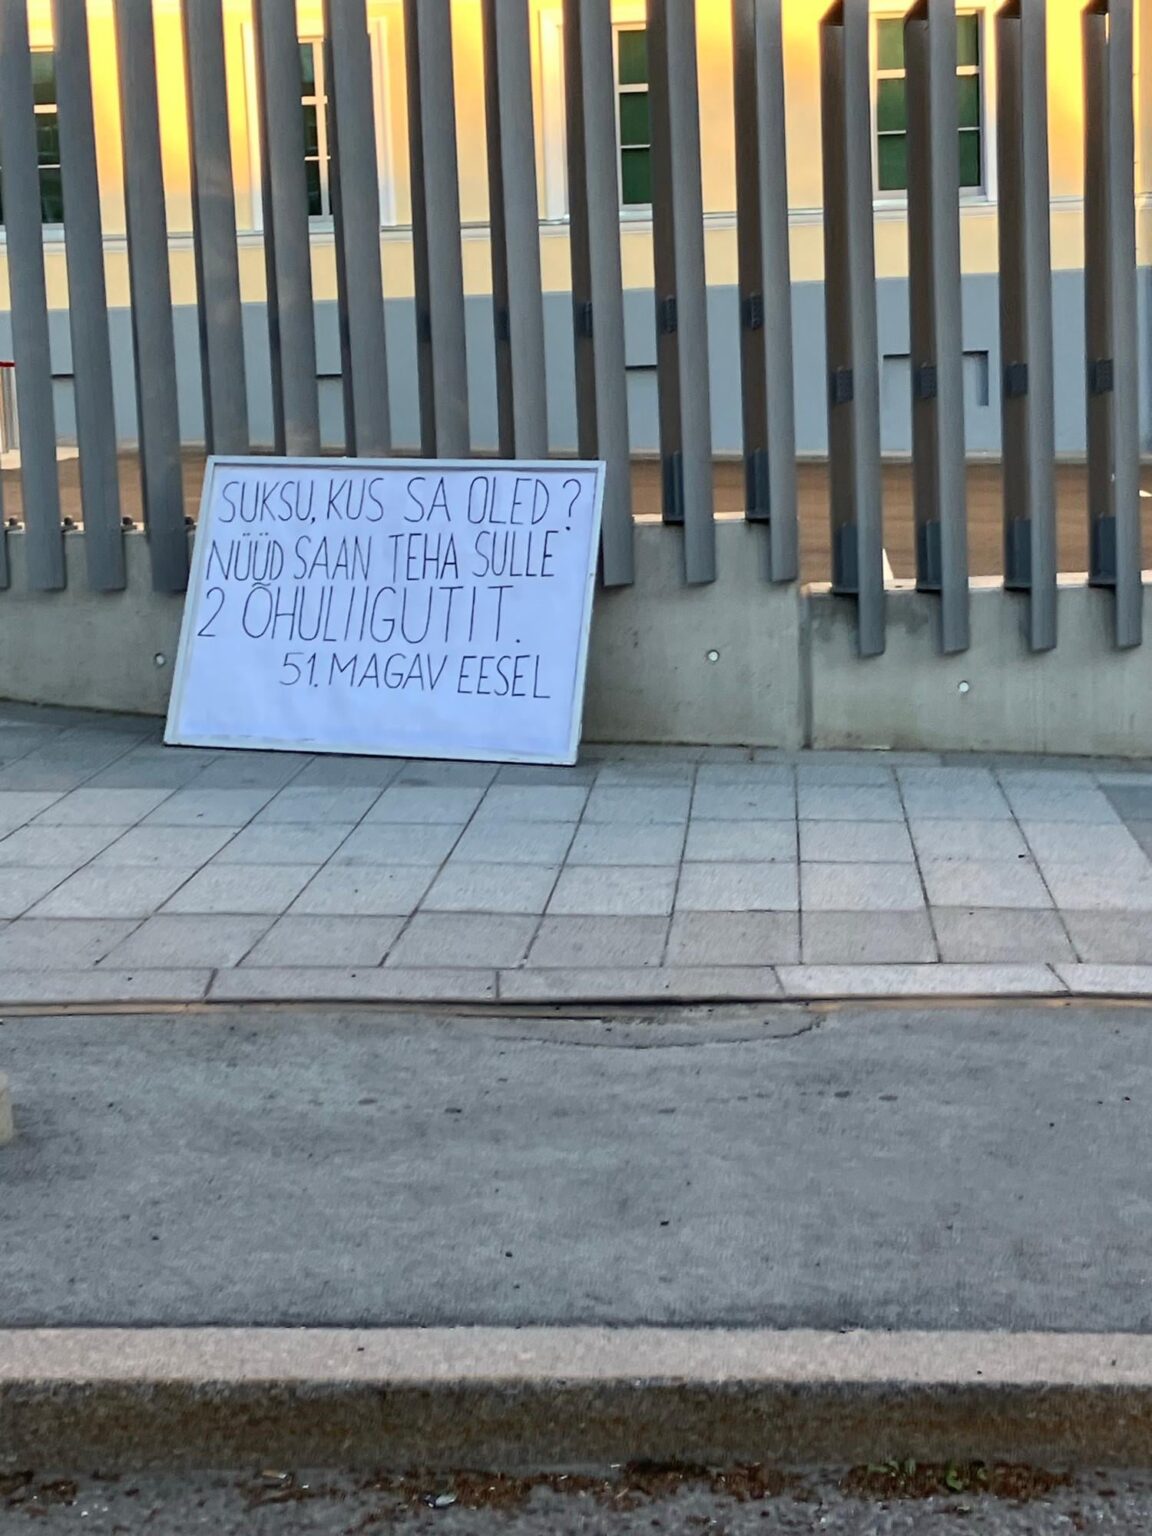 SUKSU, KUS SA OLED?
NÜÜD SAAN TEHA SULLE
2 ÕHULIIGUTIT.
51. MAGAV EESEL